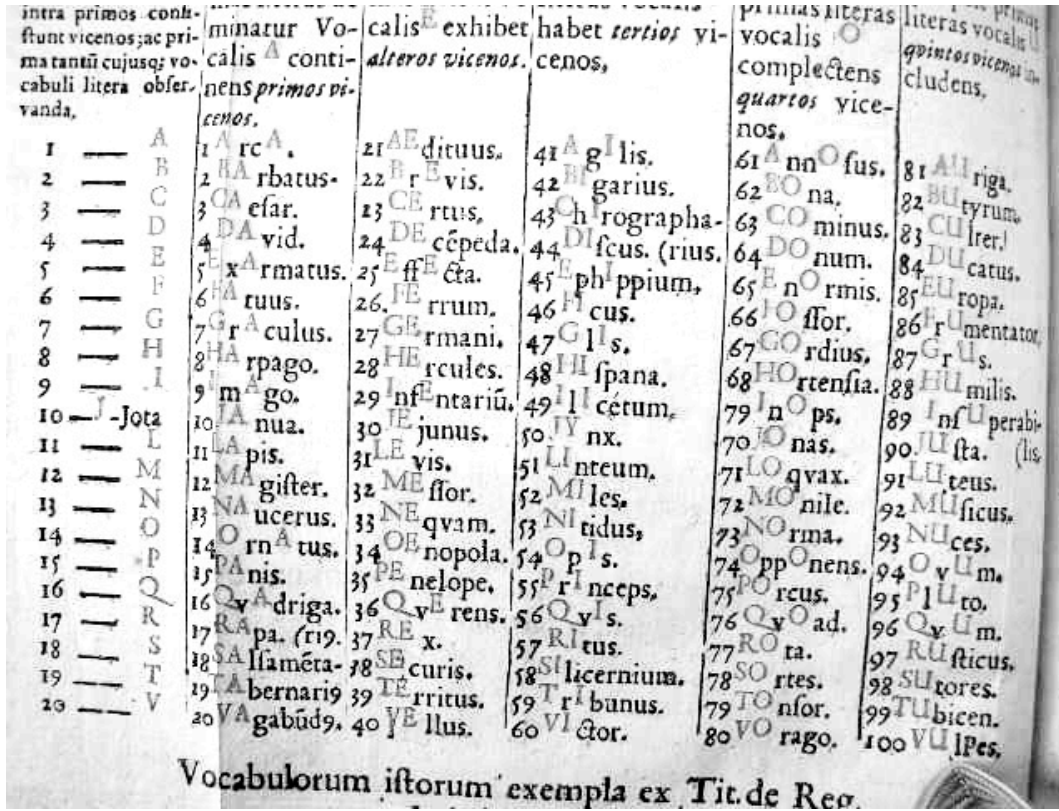 intra primos conſi-
ſtunt vicenos; ac pri-
ma tantũ cujusq; vo-
cabuli litera obſer-
vanda,
1 — A
2 — B
3 — C
4 — D
5 — E
6 — F
7 — G
8 — H
9 — I
10 — J -Jota
11 — L
12 — M
13 — N
14 — O
15 — P
16 — Q
17 — R
18 — S
19 — T
20 — V
minatur Vo-
calis A conti-
nens primos vi-
cenos.
1 ArcA.
2 BArbatus-
3 CAeſar.
4 DAvid.
5 ExArmatus.
6 FAtuus.
7 GrAculus.
8 HArpago.
9 ImAgo.
10 JAnua.
11 LApis.
12 MAgiſter.
13 NAucerus.
14 OrnAtus.
15 PAnis.
16 QvAdriga.
17 RApa. (ri9.
18 SAlſamẽta-
19 TAbernari9
20 VAgabũd9.
calis E exhibet
alteros vicenos.
21 AEdituus.
22 BrEvis.
23 CErtus,
24 DEcẽpeda.
25 EffEcta.
26. FErrum.
27 GErmani.
28 HErcules.
29 InfEntariũ.
30 JEjunus.
31 LEvis.
32 MEſſor.
33 NEqvam.
34 OEnopola.
35 PEnelope.
36 QvErens.
37 REx.
38 SEcuris.
39 TErritus.
40 VEllus.
habet tertios vi-
cenos,
41 AgIlis.
42 BIgarius.
43 ChIrographa-
44 DIſcus. (rius.
45 EphIppium,
46 FIcus.
47 GlIs.
48 HIſpana.
49 IlIcétum,
50. JYnx.
51 LInteum.
52 MIles.
53 NItidus,
54 OpIs.
55 PrInceps,
56 QvIs.
57 RItus.
58 SIlicernium.
59 TrIbunus.
60 VIctor.
primas literas
vocalis O
complectens
quartos vice-
nos,
61 AnnOſus.
62 BOna.
63 COminus.
64 DOnum.
65 EnOrmis.
66 FOſſor.
67 GOrdius.
68 HOrtenſia.
79 InOps.
70 JOnas.
71 LOqvax.
72 MOnile.
73 NOrma.
74 OppOnens.
75 POrcus.
76 QvOad.
77 ROta.
78 SOrtes.
79 TOnſor.
80 VOrago.
literas vocalis U
quintos vicenos in-
cludens,
81 AUriga.
82 BUtyrum,
83 CUlter.
84 DUcatus.
85 EUropa.
86 FrUmentator,
87 GrUs.
88 HUmilis.
89 InſUperabi-
90. JUſta. (lis,
91 LUteus.
92 MUſicus,
93 NUces.
94 OvUm.
95 PlUto.
96 QvUm.
97 RUſticus,
98 SUtores.
99 TUbicen.
100 VUlPes,
Vocabulorum iſtorum exempla ex Tit. de Reg.